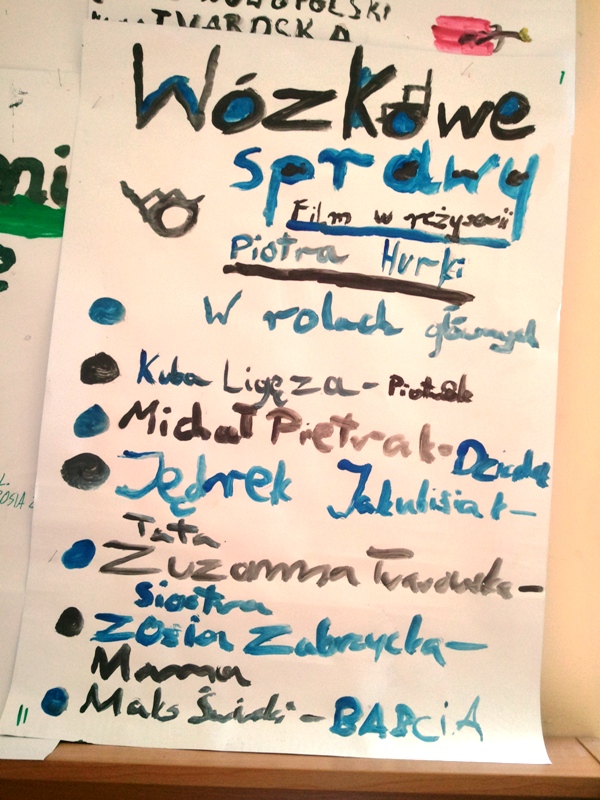 TWAROCKA
Wózkowe
sprawy
Film w reżyserii
Piotra Hurki
W rolach głównych
Kuba Ligęza - Piotrek
Michał Pietrak - Dziadek
Jędrek Jakubisiak -
Tata
Zuzanna Twarowska -
Siostra
Zosia Zabrzycka -
Mama
Maks Świrski - BABCIA